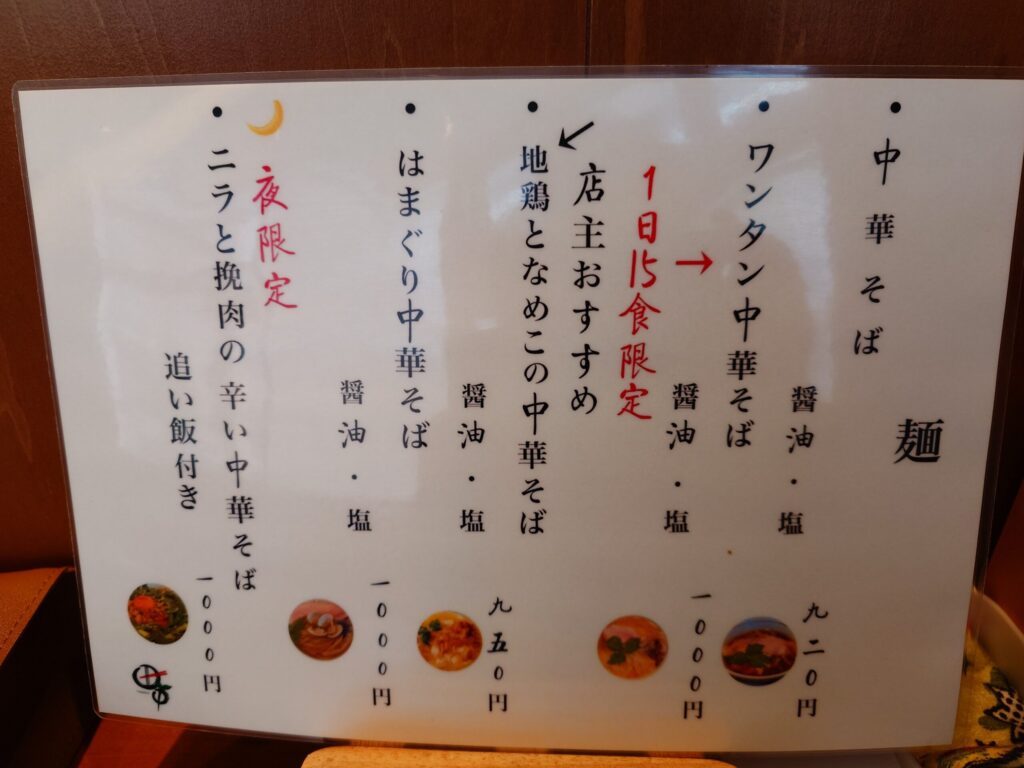 麺
・中華そば
醤油・塩
九二〇円
・ワンタン中華そば
醤油・塩
一〇〇〇円
1日15食限定
→
店主おすすめ
・地鶏となめこの中華そば
醤油・塩
九五〇円
・はまぐり中華そば
醤油・塩
一〇〇〇円
夜限定
・ニラと挽肉の辛い中華そば
追い飯付き
一〇〇〇円